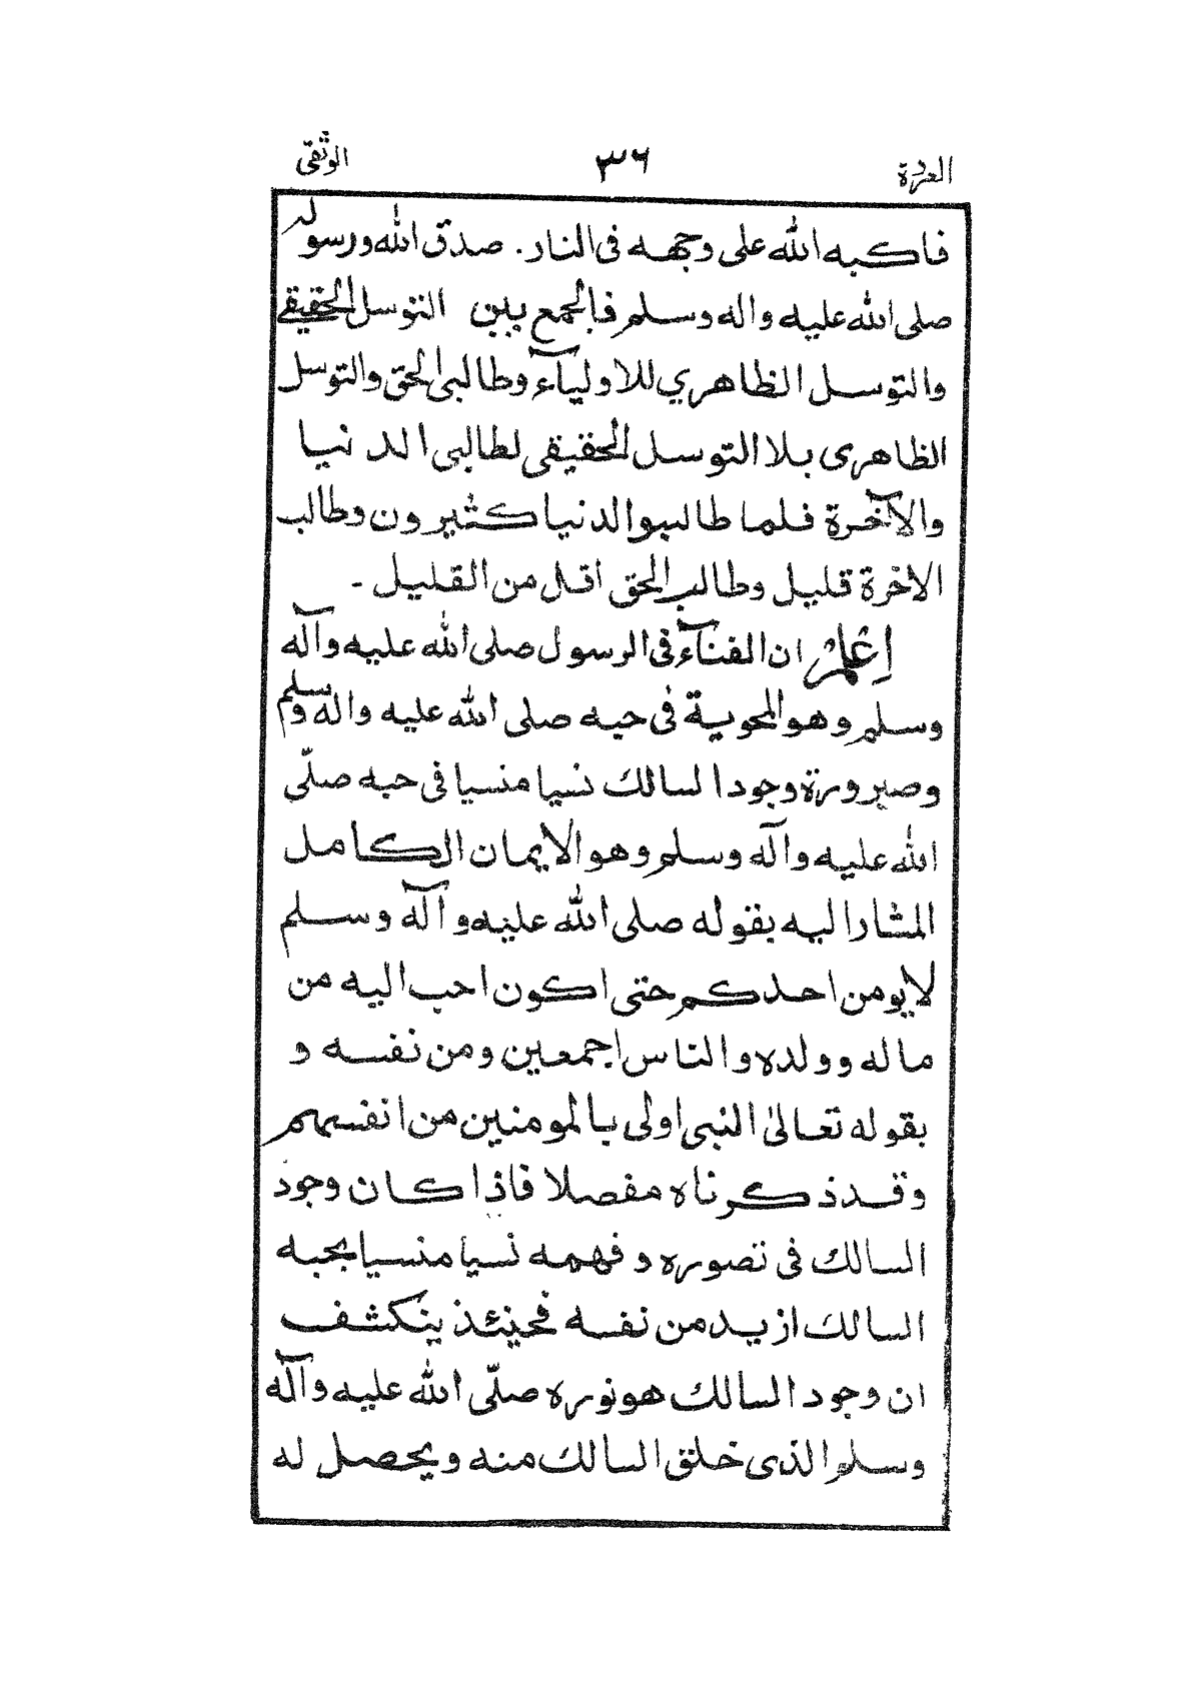 العروة ٣٦ الوثقى
فاكبه الله على وجهه فى النار. صدق الله ورسوله
صلى الله عليه واله وسلم فالجمع بين التوسل الحقيقى
والتوسل الظاهري للاوليآء وطالبى الحق والتوسل
الظاهرى بلا التوسل الحقيقى لطالبى الدنيا
والآخرة فلما طالبوا الدنيا كثيرون وطالب
الاخرة قليل وطالب الحق اقل من القليل ۔
اِعْلَمْ ان الفنآء فى الرسول صلى الله عليه وآله
وسلم وهو المحوية فى حبه صلى الله عليه واله وسلم
وصيرورة وجود السالك نسيا منسيا فى حبه صلّى
الله عليه وآله وسلم وهو الايمان الكامل
المشار اليه بقوله صلى الله عليه وآله وسلم
لايومن احدكم حتى اكون احب اليه من
ماله وولده والناس اجمعين ومن نفسه و
بقوله تعالىٰ النبى اولى بالمومنين من انفسهم
وقد ذكرناه مفصلا فاذا كان وجود
السالك فى تصوره وفهمه نسيا منسيا بحبه
السالك ازيد من نفسه فحينئذ ينكشف
ان وجود السالك هو نوره صلّى الله عليه وآله
وسلم الذى خلق السالك منه ويحصل له